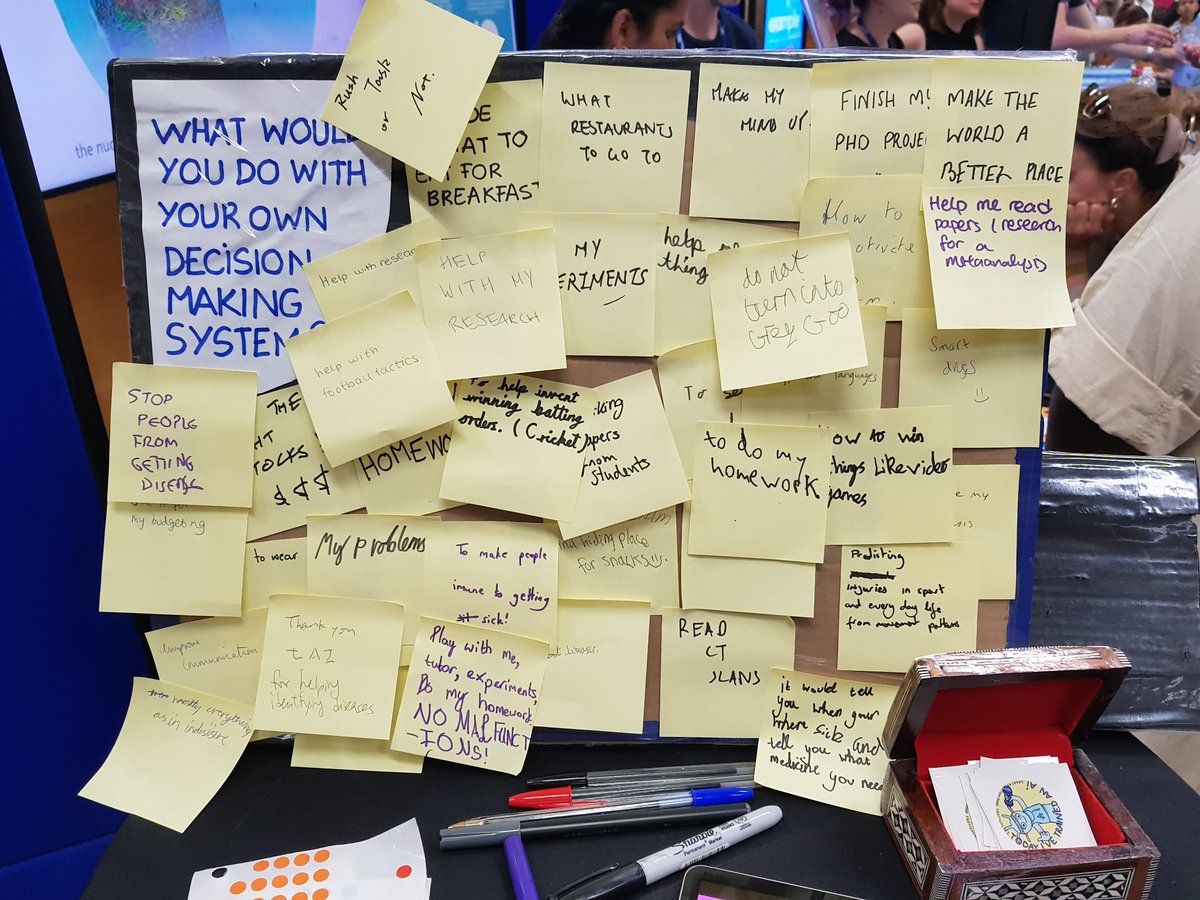 WHAT WOUL
YOU DO WITH
YOUR OWN
DECISION
MAKING
SYSTEMS
the nu
Rush
Task
or
Not.
AT TO
FOR
BREAKFAST
WHAT
RESTAURANTS
TO GO TO
MAKE MY
MIND UP
FINISH MY
PHD PROJE
MAKE THE
WORLD A
BETTER PLACE
Help me read
papers / research
for a
metaanalysis
How to
otivate
Help with resear
HELP
WITH MY
RESEARCH
MY
ERIMENTS
help me
thing
do not
turn into
Grey Goo
Smart
drugs
help with
football tactics
languages
STOP
PEOPLE
FROM
GETTING
DISEASE
my budgeting
THE
TOCKS
$ $ $
HOMEWO
To help invent
winning batting
orders. (Cricket)
king
apers
from
students
To se
to do my
homework
ow to win
things like video
games
e my
to wear
My problems
To make people
imune to getting
sick!
hiding place
for snacks
Predicting
injuries in sport
and every day life
from movement patterns
Improve
communication
Thank you
t AI
for helping
identify diseases
mostly everything
as in indisitre
Play with me,
tutor, experiments,
Do my homework
NO MALFUNCT
-IONS!
READ
CT
SCANS
it would tell
you when your
where sick and
tell you what
medicine you need
TODAY I'VE TRAINED AN AI